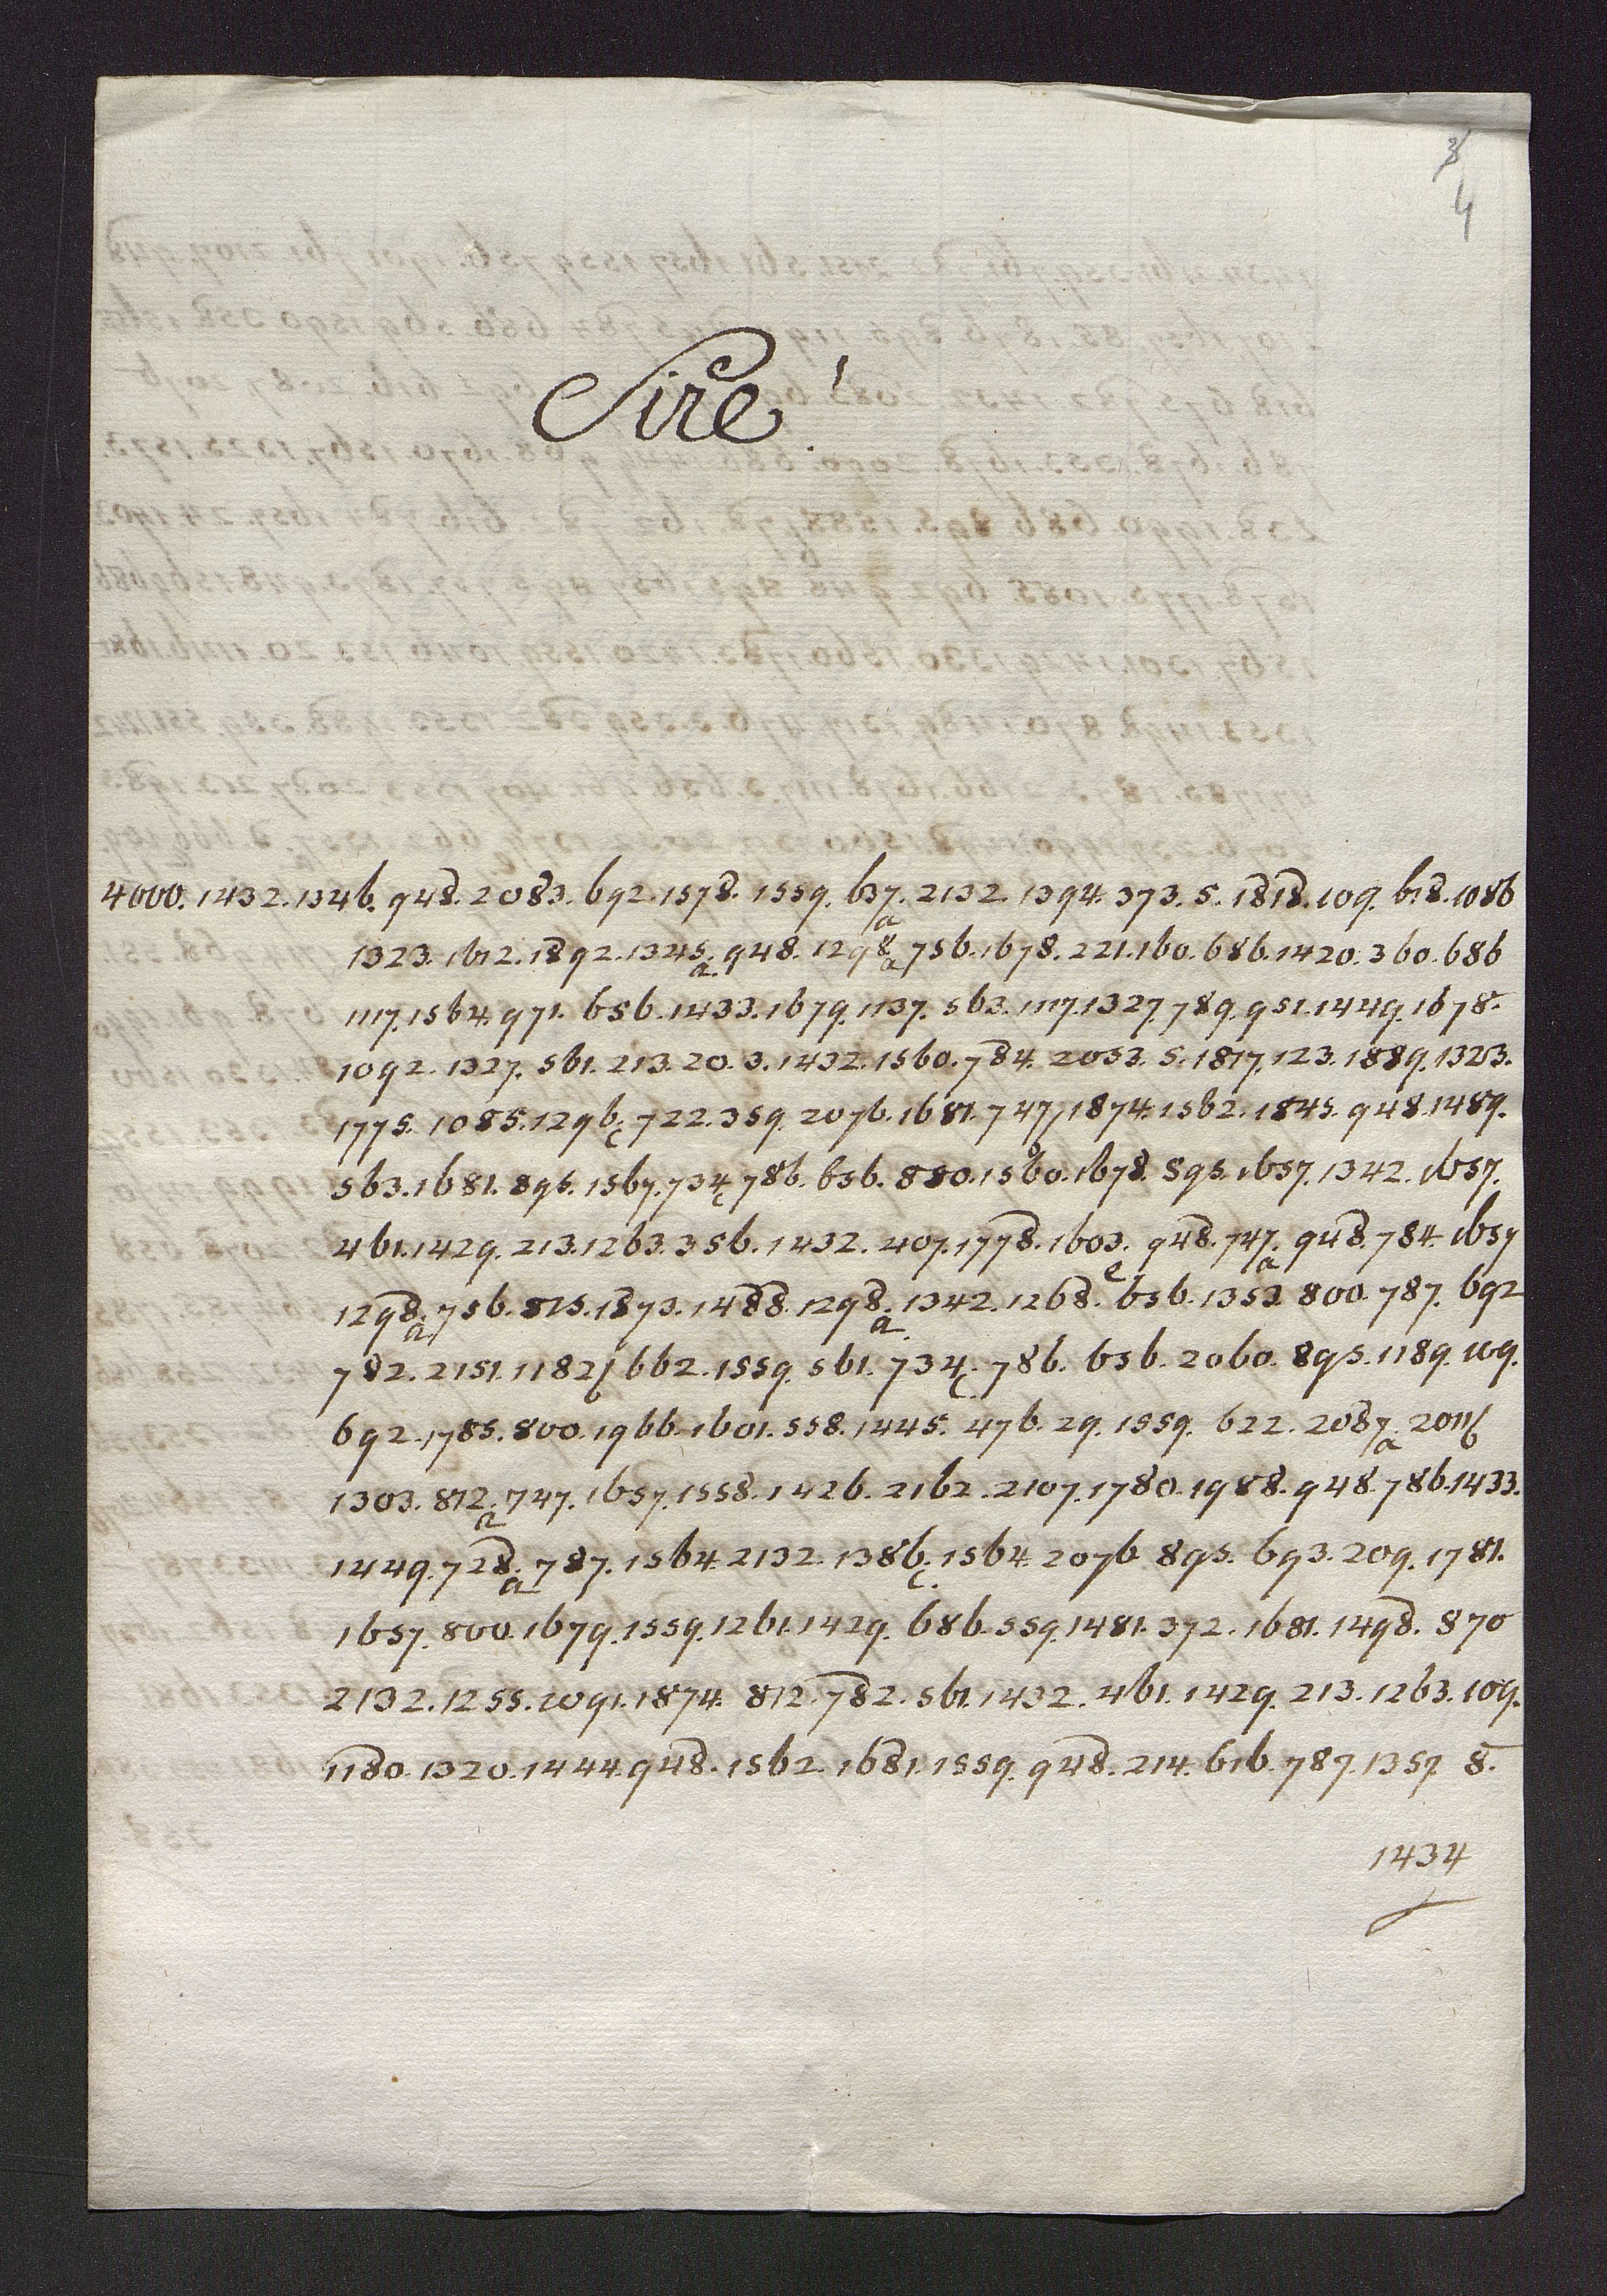 3
4
Sire!
4000. 1432. 1346. 948. 2083. 692. 1578. 1559. 637a. 2132. 1394. 373. 5. 1818. 109. 618. 1086
1323. 1612. 1892. 1345a. 948. 1298a. 756. 1678. 221. 160. 686. 1420. 360. 686
1117. 1564. 971. 656. 1433. 1679. 1137. 563. 1117. 1327. 789. 951. 1449. 1678.
1092. 1327. 561. 213. 20. 3. 1432. 1560. 784. 2053. 5. 1817. 123. 1889. 1323.
1775. 1085. 1296c. 722. 359. 2076. 1681. 747. 1874. 1562. 1845. 948. 1489.
563. 1681. 895. 1567. 734c. 786. 656. 880. 1560. 1678. 595. 1657. 1342. 1657.
461. 1429. 213. 1263. 356. 1432. 407. 1778. 1603e. 948. 747a. 948. 784. 1657
1298a. 756. 825. 1873. 1488. 1298a. 1342. 1268. 656. 1353. 800. 787. 692
782. 2151. 1182. 662. 1559. 561. 734c. 786. 656. 2060. 895. 1189. 109.
692. 1785. 800. 1966. 1601. 558. 1445. 476. 29. 1559. 622. 2087a.
1303. 812a. 747. 1657. 1558. 1426. 2162. 2107. 1780. 1988. 948. 786. 1433.
1449. 728a. 787. 1564. 2132. 1386c. 1564. 2076. 895. 693. 209. 1781.
1657. 800. 1679. 1559. 1261. 1429. 686. 559. 1481. 372. 1681. 1498. 870
2132. 1255. 2091. 1874. 812. 782. 561. 1432. 461. 1429. 213. 1263. 109.
1180. 1320. 1444. 948. 1562. 1681. 1559. 948. 214. 616. 787. 1357. 8.
1434